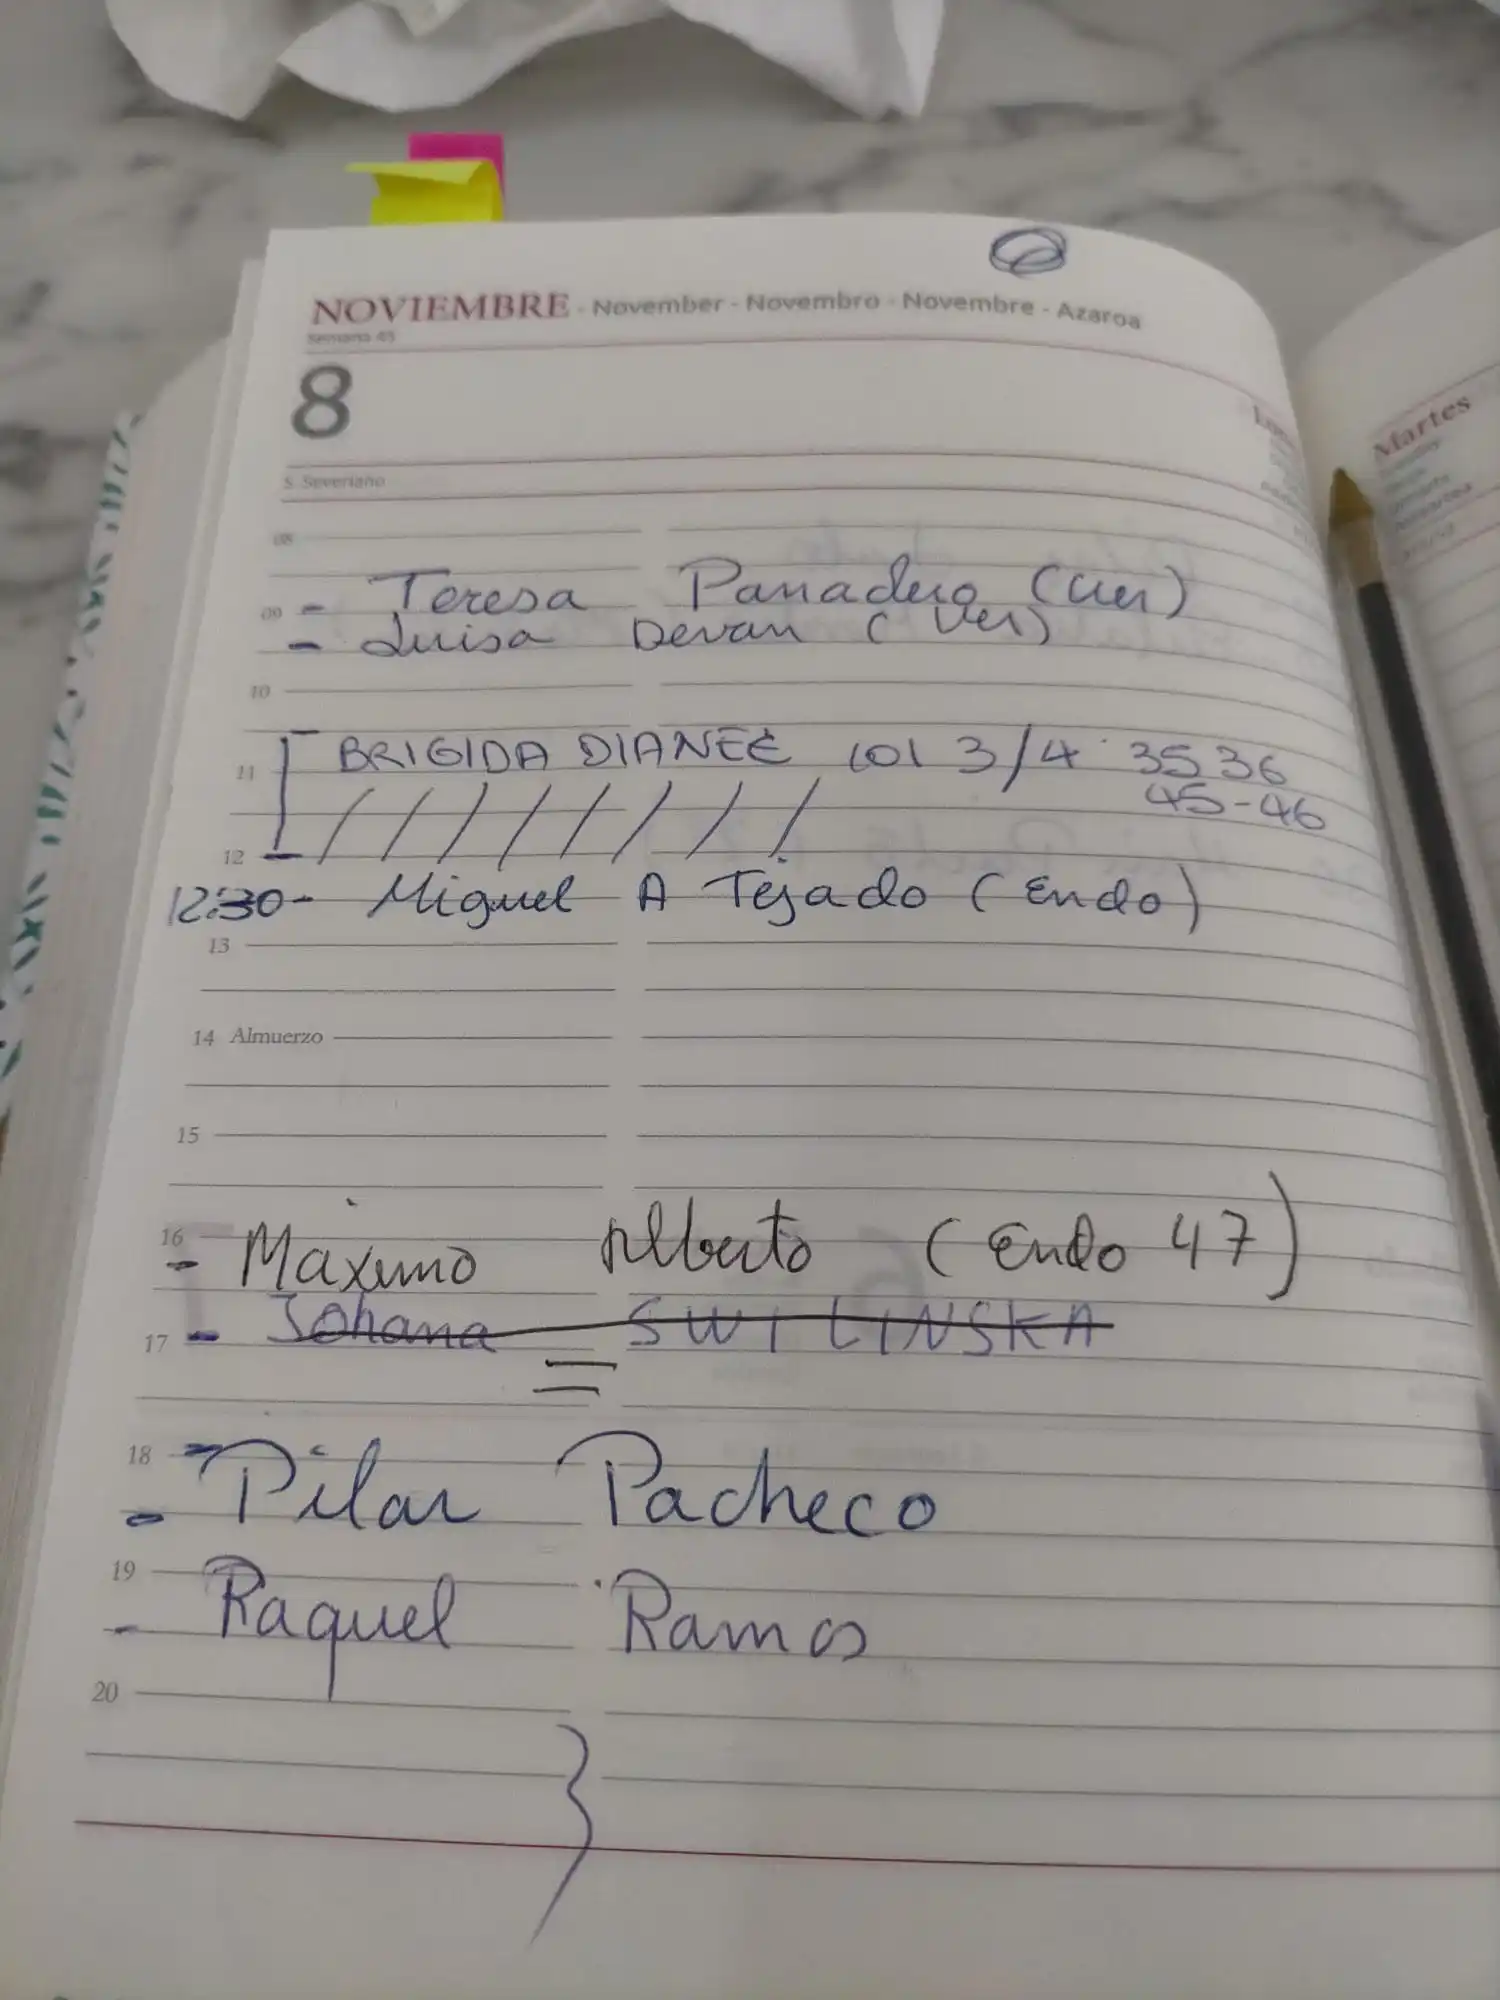 NOVIEMBRE - November - Novembro - Novembre - Azaroa
Semana 45
8
S. Severiano
08
- Teresa Panadero (Ver)
09
- Luisa Devan (Ver)
10
BRIGIDA DIANEE 101 3/4 35 36
11
45-46
12
12:30- Miguel A Tejado (Endo)
13
14 Almuerzo
15
16
- Maximo Alberto (Endo 47)
- Johana SWILINSKA
17
18
- Pilar Pacheco
19
- Raquel Ramos
20
Martes